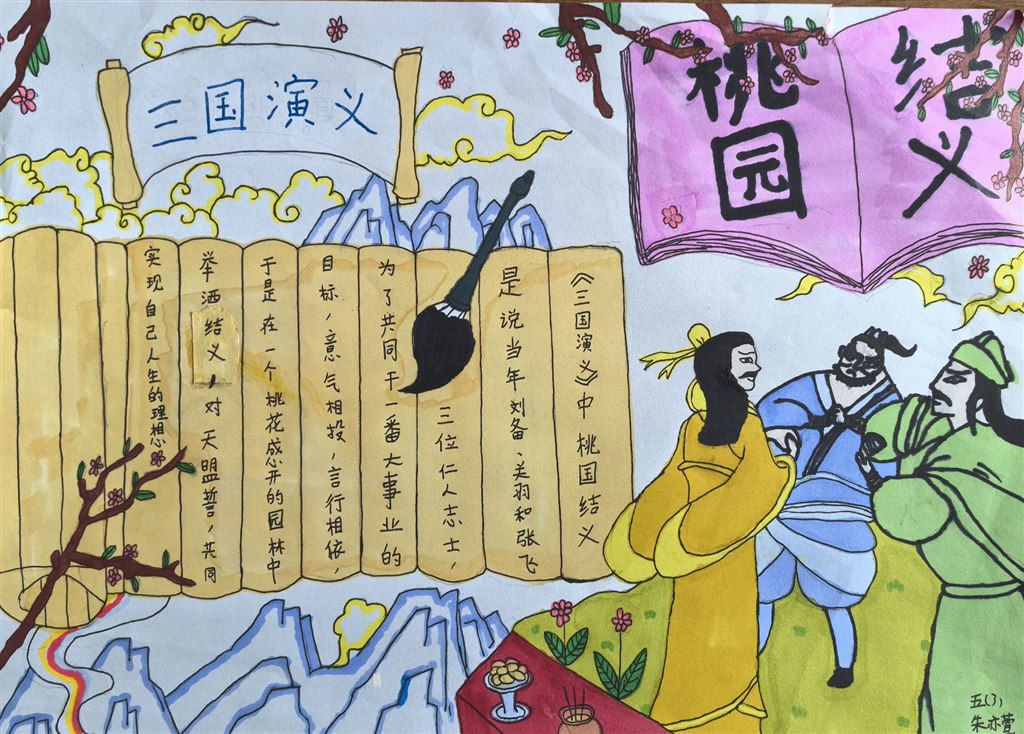 三国演义
桃园
结义
《三国演义》中 桃国结义
是说当年刘备、关羽和张飞
三位仁人志士，
为了共同干一番大事业的
目标，意气相投，言行相依，
于是在一个桃花盛开的园林中
举洒结义，对天盟誓，共同
实现自己人生的理想
朱亦萱